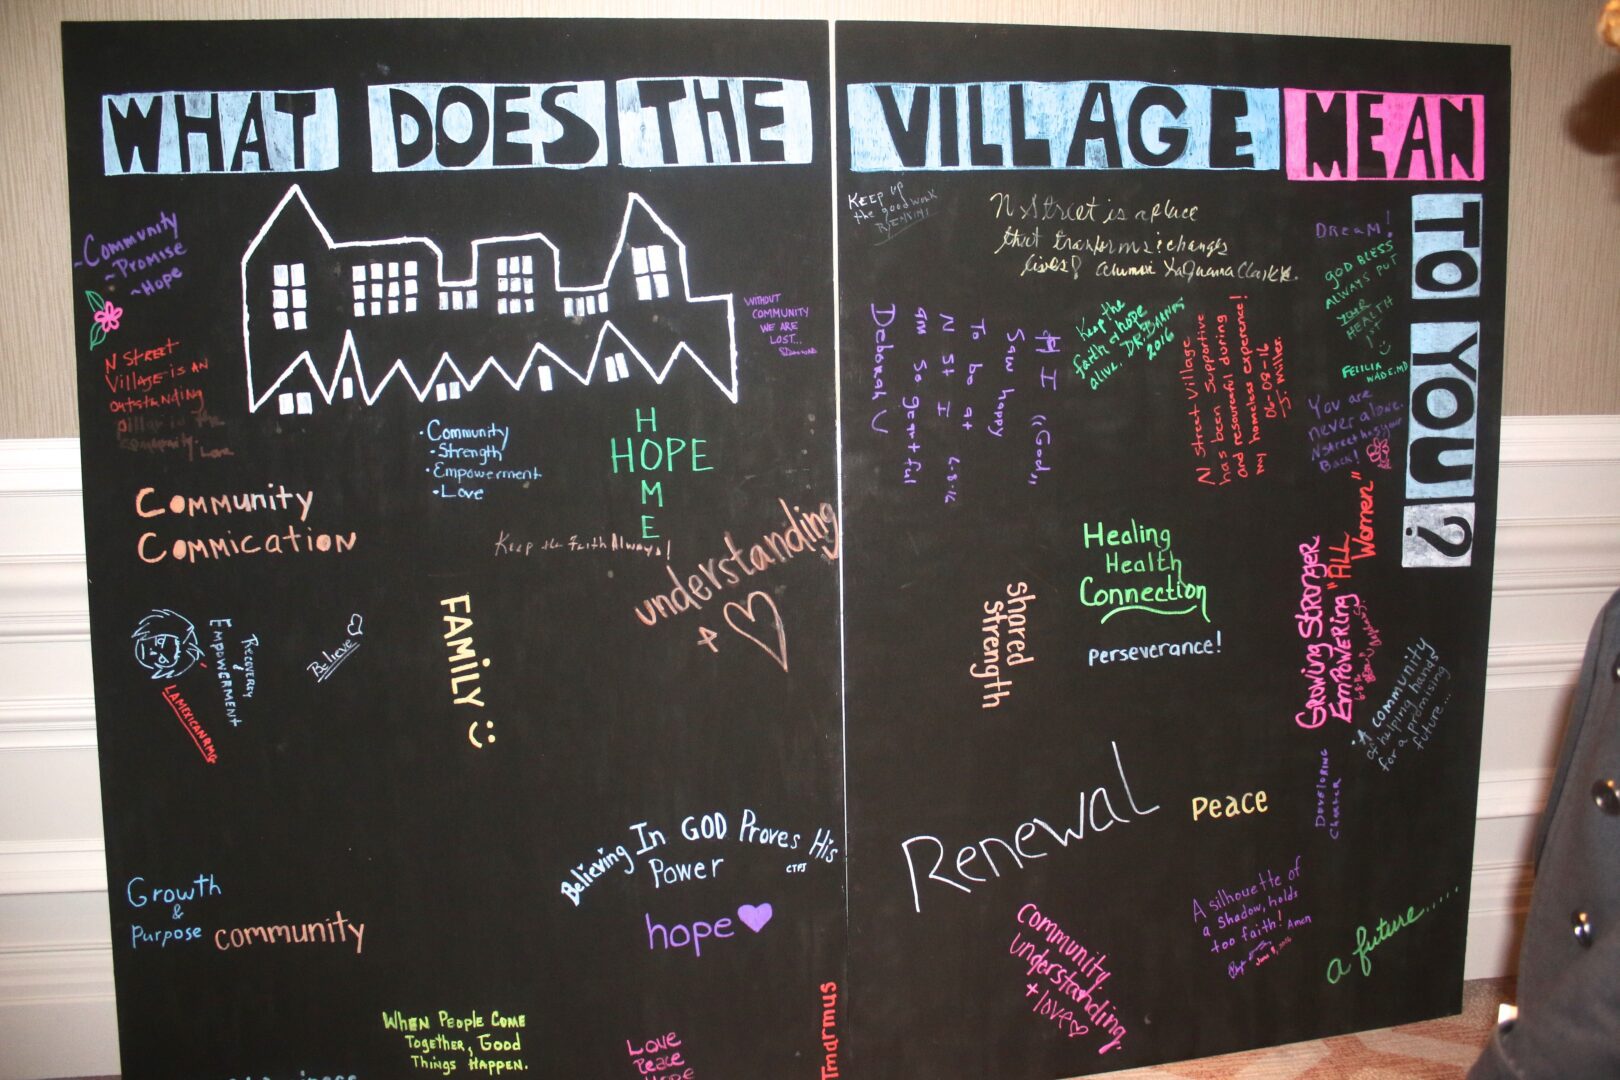 WHAT DOES THE VILLAGE MEAN
TO YOU?
~Community
~Promise
~Hope
N STREET
VILLAGE IS AN
OUTSTANDING
pillar in the
community.
Love
WITHOUT
COMMUNITY
WE ARE
LOST...
• Community
• Strength
• Empowerment
• Love
HOPE
HOME
Community
Commication
Keep the Faith Always!
understanding
+
RECOVEREY
&
EMPOWERMENT
LAMEXICANRMS
Believe
FAMILY
Believing In GOD Proves His
Power
CTFJ
hope
Growth
&
Purpose
community
WHEN PEOPLE COME
TOGETHER, GOOD
THINGS HAPPEN.
LOVE
Peace
Hope
Tmarmus
KEEP UP
the good work
N Street is a place
that transforms & changes
lives! alumni LaQuana Clark
DREAM!
GOD BLESS
ALWAYS PUT
YOUR
HEALTH
1st
FELICIA
WADE, MD
Keep the
faith & hope
alive.
DR. BARNES
2016
"God,"
At I
Saw happy
To be at
N St I 6.8.16
am So greatful
Deborah V
N Street Village
has been Supportive
and resourceful during
my homeless experience!
06-08-16
J. Miller.
You are
never alone.
N Street has your
Back!
Healing
Health
Connection
perseverance!
shared
strength
GROWING STRONGER
EMPOWERING "ALL
Women"
"A community
of helping hands
for a promising
future...
Renewal
Peace
DEVELOPING
Character
A silhouette of
a Shadow, holds
too faith! Amen
June 8, 2016
a future.....
Community
understanding
+ love